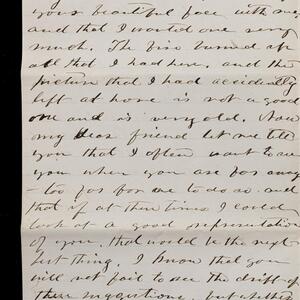 your beautiful face with me
and that I wanted one very
much. The fire burned up
all that I had here, and the
picture that I had accidently
left at home is not a good
one and is very old. Now
my dear friend let me tell
you that I often want to see
you when you are far away
- too far for me to do so and
that if at these times I could
look at a good representation
of you, that would be the next
best thing. I know that you
will not fail to see the drift of
these suggestions, but